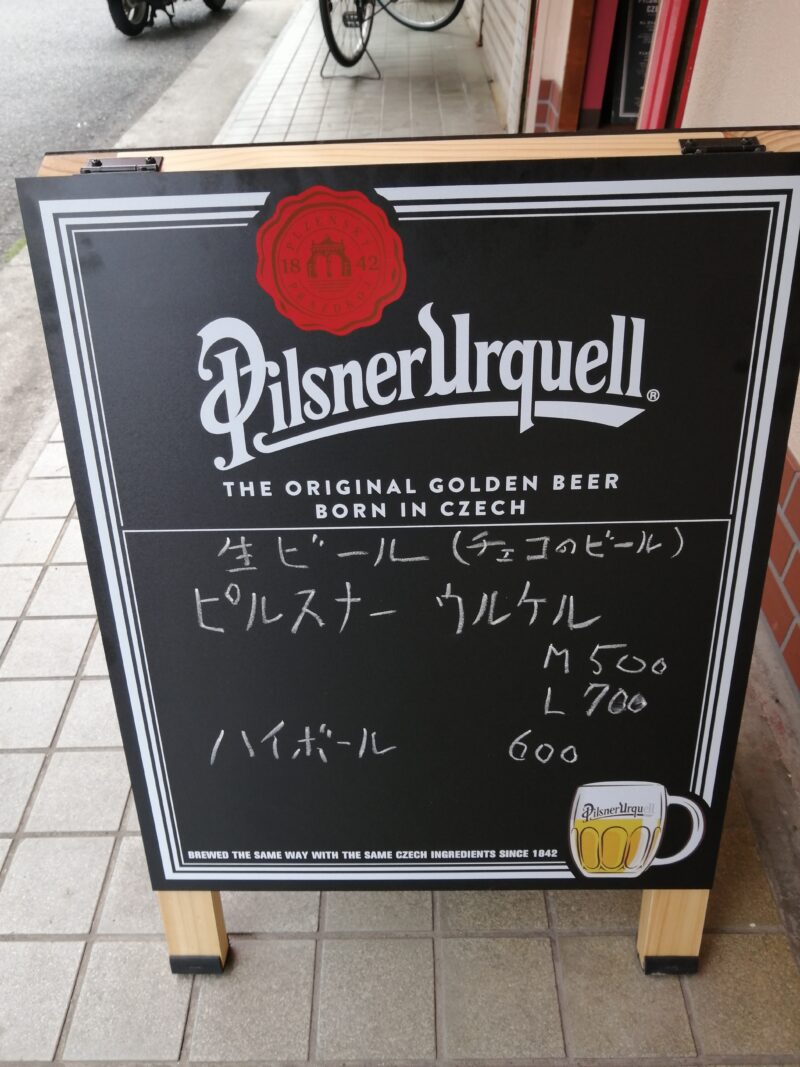 PLZEŇSKÝ
18 42
PRAZDROJ
Pilsner Urquell®
THE ORIGINAL GOLDEN BEER
BORN IN CZECH
生ビール (チェコのビール)
ピルスナー ウルケル
M 500
L 700
ハイボール 600
Pilsner Urquell
BREWED THE SAME WAY WITH THE SAME CZECH INGREDIENTS SINCE 1842